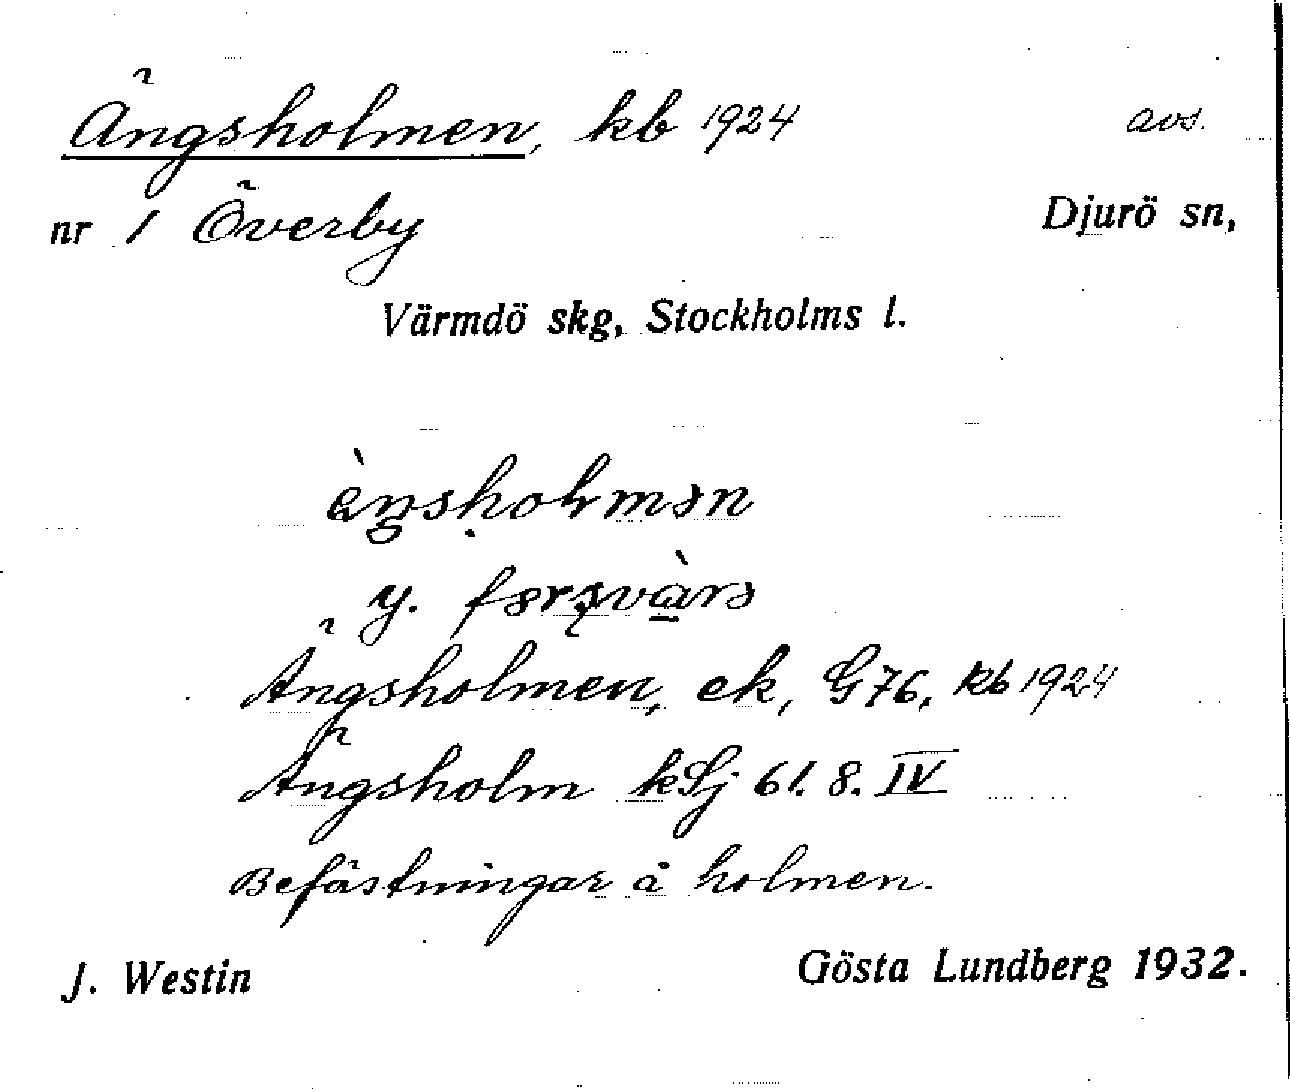 Ängsholmen, kb 1924 avs.
nr 1 Överby Djurö sn,
Värmdö skg, Stockholms l.
y.
Ängsholmen, ek, G 76, kb 1924
Ängsholm kSj 61. 8. IV
Befästningar å holmen.
J. Westin Gösta Lundberg 1932.